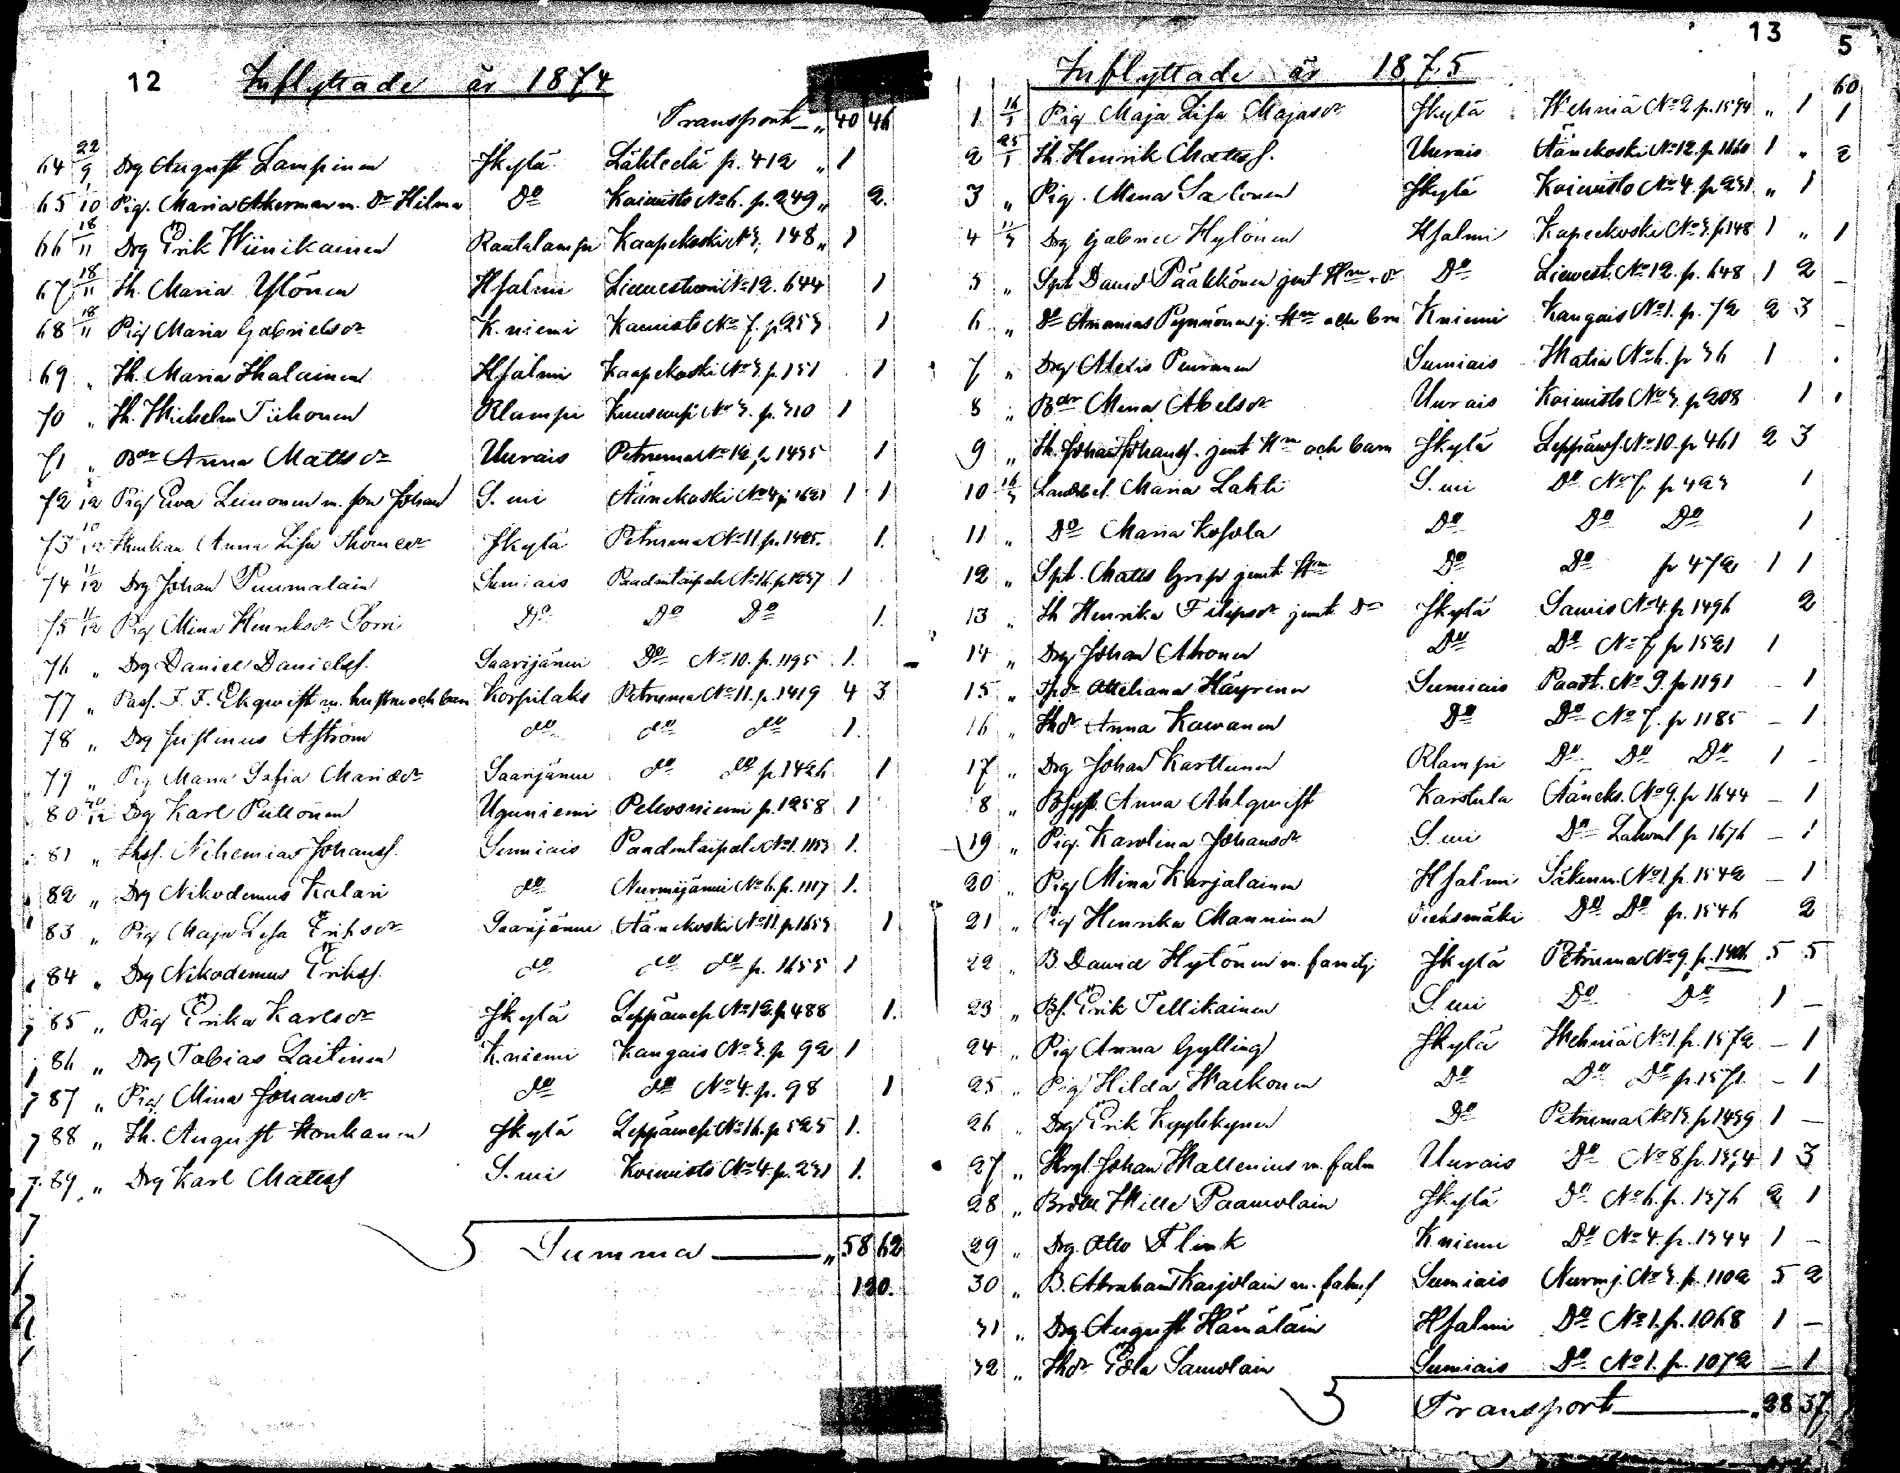 12 Inflyttade år 1874
Transport „ 40 46
64 22/9 Drg August Lampinen Jkylä Lähtelä p. 412 „ 1
65 10 Pig. Maria Åkerman m. Dr Hilma Do Koivisto No 6. p. 249 „ 2.
66 18/11 Drg Erik Wiinikainen Rautalampi Kaapekoski No 3, 148 „ 1
67 18/11 Ih. Maria Ylönen Hsalmi Liewestuori No 12. 644 1
68 18/11 Pig Maria Gabrielsdr K. niemi Koivisto No 7. p 253 1
69 „ Ih. Maria Ihalainen Hsalmi Kaapekoski No 3. p. 151 1
70 „ Ih. Wilhelm Tiihonen Rlampi Kuusvesi No 3. p. 310 1
71 „ Bdr Anna Mattsdr Uurais Petruma No 12 p 1435 1
72 /12 Pig Ewa Leinonen m. son Johan S. mi Äänekoski No 4 p 1621 1 1
73 10/12 Anna Lisa Thomasdr Jkylä Petruma No 11. p. 1425. 1.
74 11/12 Drg Johan Puumalain Sumiais Paadentaipale No 16. p 1237 1
75 11/12 Pig Mina Henriksdr Sorri Do Do Do 1.
76 „ Drg Daniel Danielss. Saarijärwi Do No 10. p. 1195 1.
77 „ Pass. F. F. Ekqwist m. hustru och barn Korpilaks Petruma No 11. p. 1419 4 3
78 „ Drg Justinus Åström do do do 1.
79 „ Pig Maria Sofia Mariædr Saarijärwi do do p 1426 1
80 20/12 Drg Karl Puttonen Uguniemi Pellosniemi p. 1258 1
81 „ Ihsf. Nehemias Johanss. Sumiais Paadentaipale No 1. 1153 1.
82 „ Drg Nikodemus Kalari do Nurmijärwi No 6. p. 1117 1.
83 „ Pig Maja Lisa Eriksdr Saarijärwi Äänekoski No 11 p 1653 1
84 „ Drg Nikodemus Erikss. do do do p. 1655 1
85 „ Pig Erika Karlsdr Jkylä Leppäwesi No 12 p 488 1.
86 „ Drg Tobias Laitinen K. niemi Kangais No 3. p 92 1
87 „ Pig Mina Johansdr do do No 4. p. 98 1
88 „ Ih. August Honkanen Jkylä Leppäwesi No 16. p 525 1.
89 „ Drg Karl Matss S. mi Koivisto No 4. p. 231 1.
Summa „ 58 62
120.
13 5
Inflyttade år 1875
60
1 16/1 Pig Maja Lisa Majasdr Jkylä Wehniä No 2 p. 1594 „ 1 1
2 25/1 Ih. Henrik Matss. Uurais Äänekoski No 12. p 1660 1 „ 2
3 „ Pig. Mina Salonen Jkylä Koivisto No 4. p 231 „ 1
4 11/3 Drg Gabriel Hytönen Hsalmi Kapeekoski No 3. p 148 1 „ 1
5 „ Spt. David Pääkkönen jmt Hru. dr Do Liewest. No 12. p. 648 1 2 –
6 „ Do Ananias Pynnönen j. Hru och brn Kniemi Kangais No 1. p. 72 2 3 –
7 „ Drg Alexis Purranen Sumiais Matia No 6. p 36 1
8 „ Bdr Mina Abelsdr Uurais Koivisto No 3. p 208 1
9 „ Ih. Johan Johanss. jmt Hru och barn Jkylä Leppäws. No 10. p 461 2 3
10 16/3 Maria Lahti S. mi Do No 7. p 423 1
11 „ Do Maria Do Do Do 1
12 „ Spt. Matts Grip jemt Hru Do Do p 472 1 1
13 „ Ih Henrika Filipsdr jemt Dr Jkylä Savis No 4. p 1496 2
14 „ Drg Johan Ahonen Do Do No 7 p 1521 1
15 „ Häyrinen Sumiais Paadt. No 9. p 1191 – 1
16 „ Ihdr Anna Kawanen Do Do No 7. p 1185 – 1
17 „ Drg Johan Karttunen Rlampi Do Do Do 1 –
8 „ Anna Ahlqwist Karstula Äänek. No 9. p 1644 – 1
19 „ Pig. Karolina Johansdr S. mi Do p 1676 – 1
20 „ Pig Mina Karjalainen Hsalmi No 1. p. 1542 – 1
21 „ Pig Henrika Manninen Pieksmäki Do Do p. 1546 2
22 „ B. David Hytönen m. familj Jkylä Petruma No 9. p. 1406 5 5
23 „ Bs. Erik Tellikainen S. mi Do Do 1 –
24 „ Pig Anna Gylling Jkylä Wehniä No 1. p. 1572 – 1
25 „ Pig Hilda Markonen Do Do Do p. 1571 – 1
26 „ Drg Erik Do Petruma No 13. p 1439 1 –
27 „ Johan Wallenius m. Uurais Do No 8 p. 1394 1 3
28 „ Wille Paawolain Jkylä Do No 6. p. 1376 2 1
29 „ Drg. Otto Flink Kniemi Do No 4. p. 1344 1 –
30 „ B. Abraham Karjolain m. Sumiais Nurmj. No 3. p. 1102 5 2
31 „ Drg August Hämäläin Hsalmi Do No 1. p. 1068 1 –
32 „ Ihdr Edla Sawolain Sumiais Do No 1. p. 1072 – 1
Transport „ 28 37